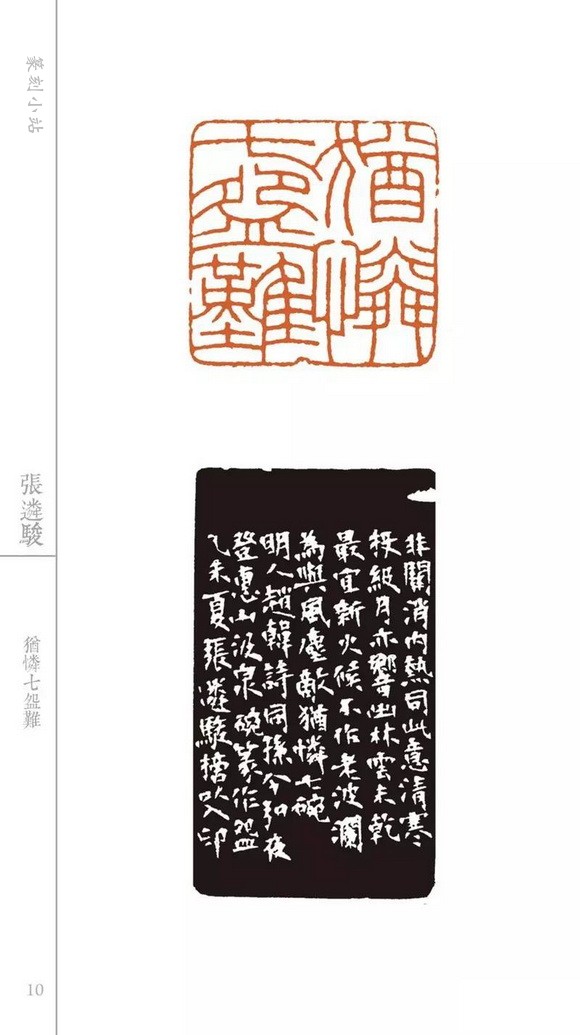 篆刻小站
猶憐
七盌難
張遴駿
猶憐七盌難
非關消內熱同此意清寒
梜級月亦響出林雲未乾
最宜新火候不作老波瀾
為與風塵敵猶憐七碗
明人趙韓詩同孫令弘夜
登惠山汲泉碗篆作盌
乙未夏張遴駿擔以入印
10